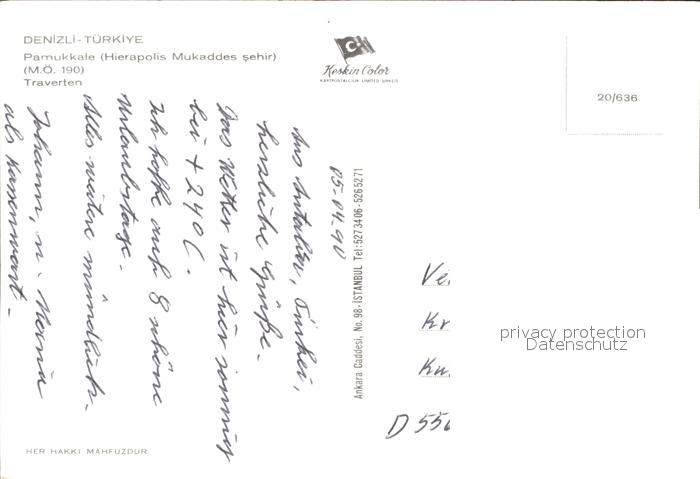 DENİZLİ - TÜRKİYE
Pamukkale (Hierapolis Mukaddes şehir)
(M.Ö. 190)
Traverten
Keskin Color
KARTPOSTALCILIK LIMITED ŞİRKETİ
20/636
05-04-90
Aus Antalia, Türkei,
herzliche Grüße.
Das Wetter ist hier sonnig
bei + 24°C.
Ich hoffe auf 8 schöne
Urlaubstage.
Alles weitere mündlich.
Johann, n.
als Kassenwart.
Ankara Caddesi, No. 98 - İSTANBUL Tel: 5273406 - 5265271
Ve
Kr
Ku
D 55
privacy protection
Datenschutz
HER HAKKI MAHFUZDUR